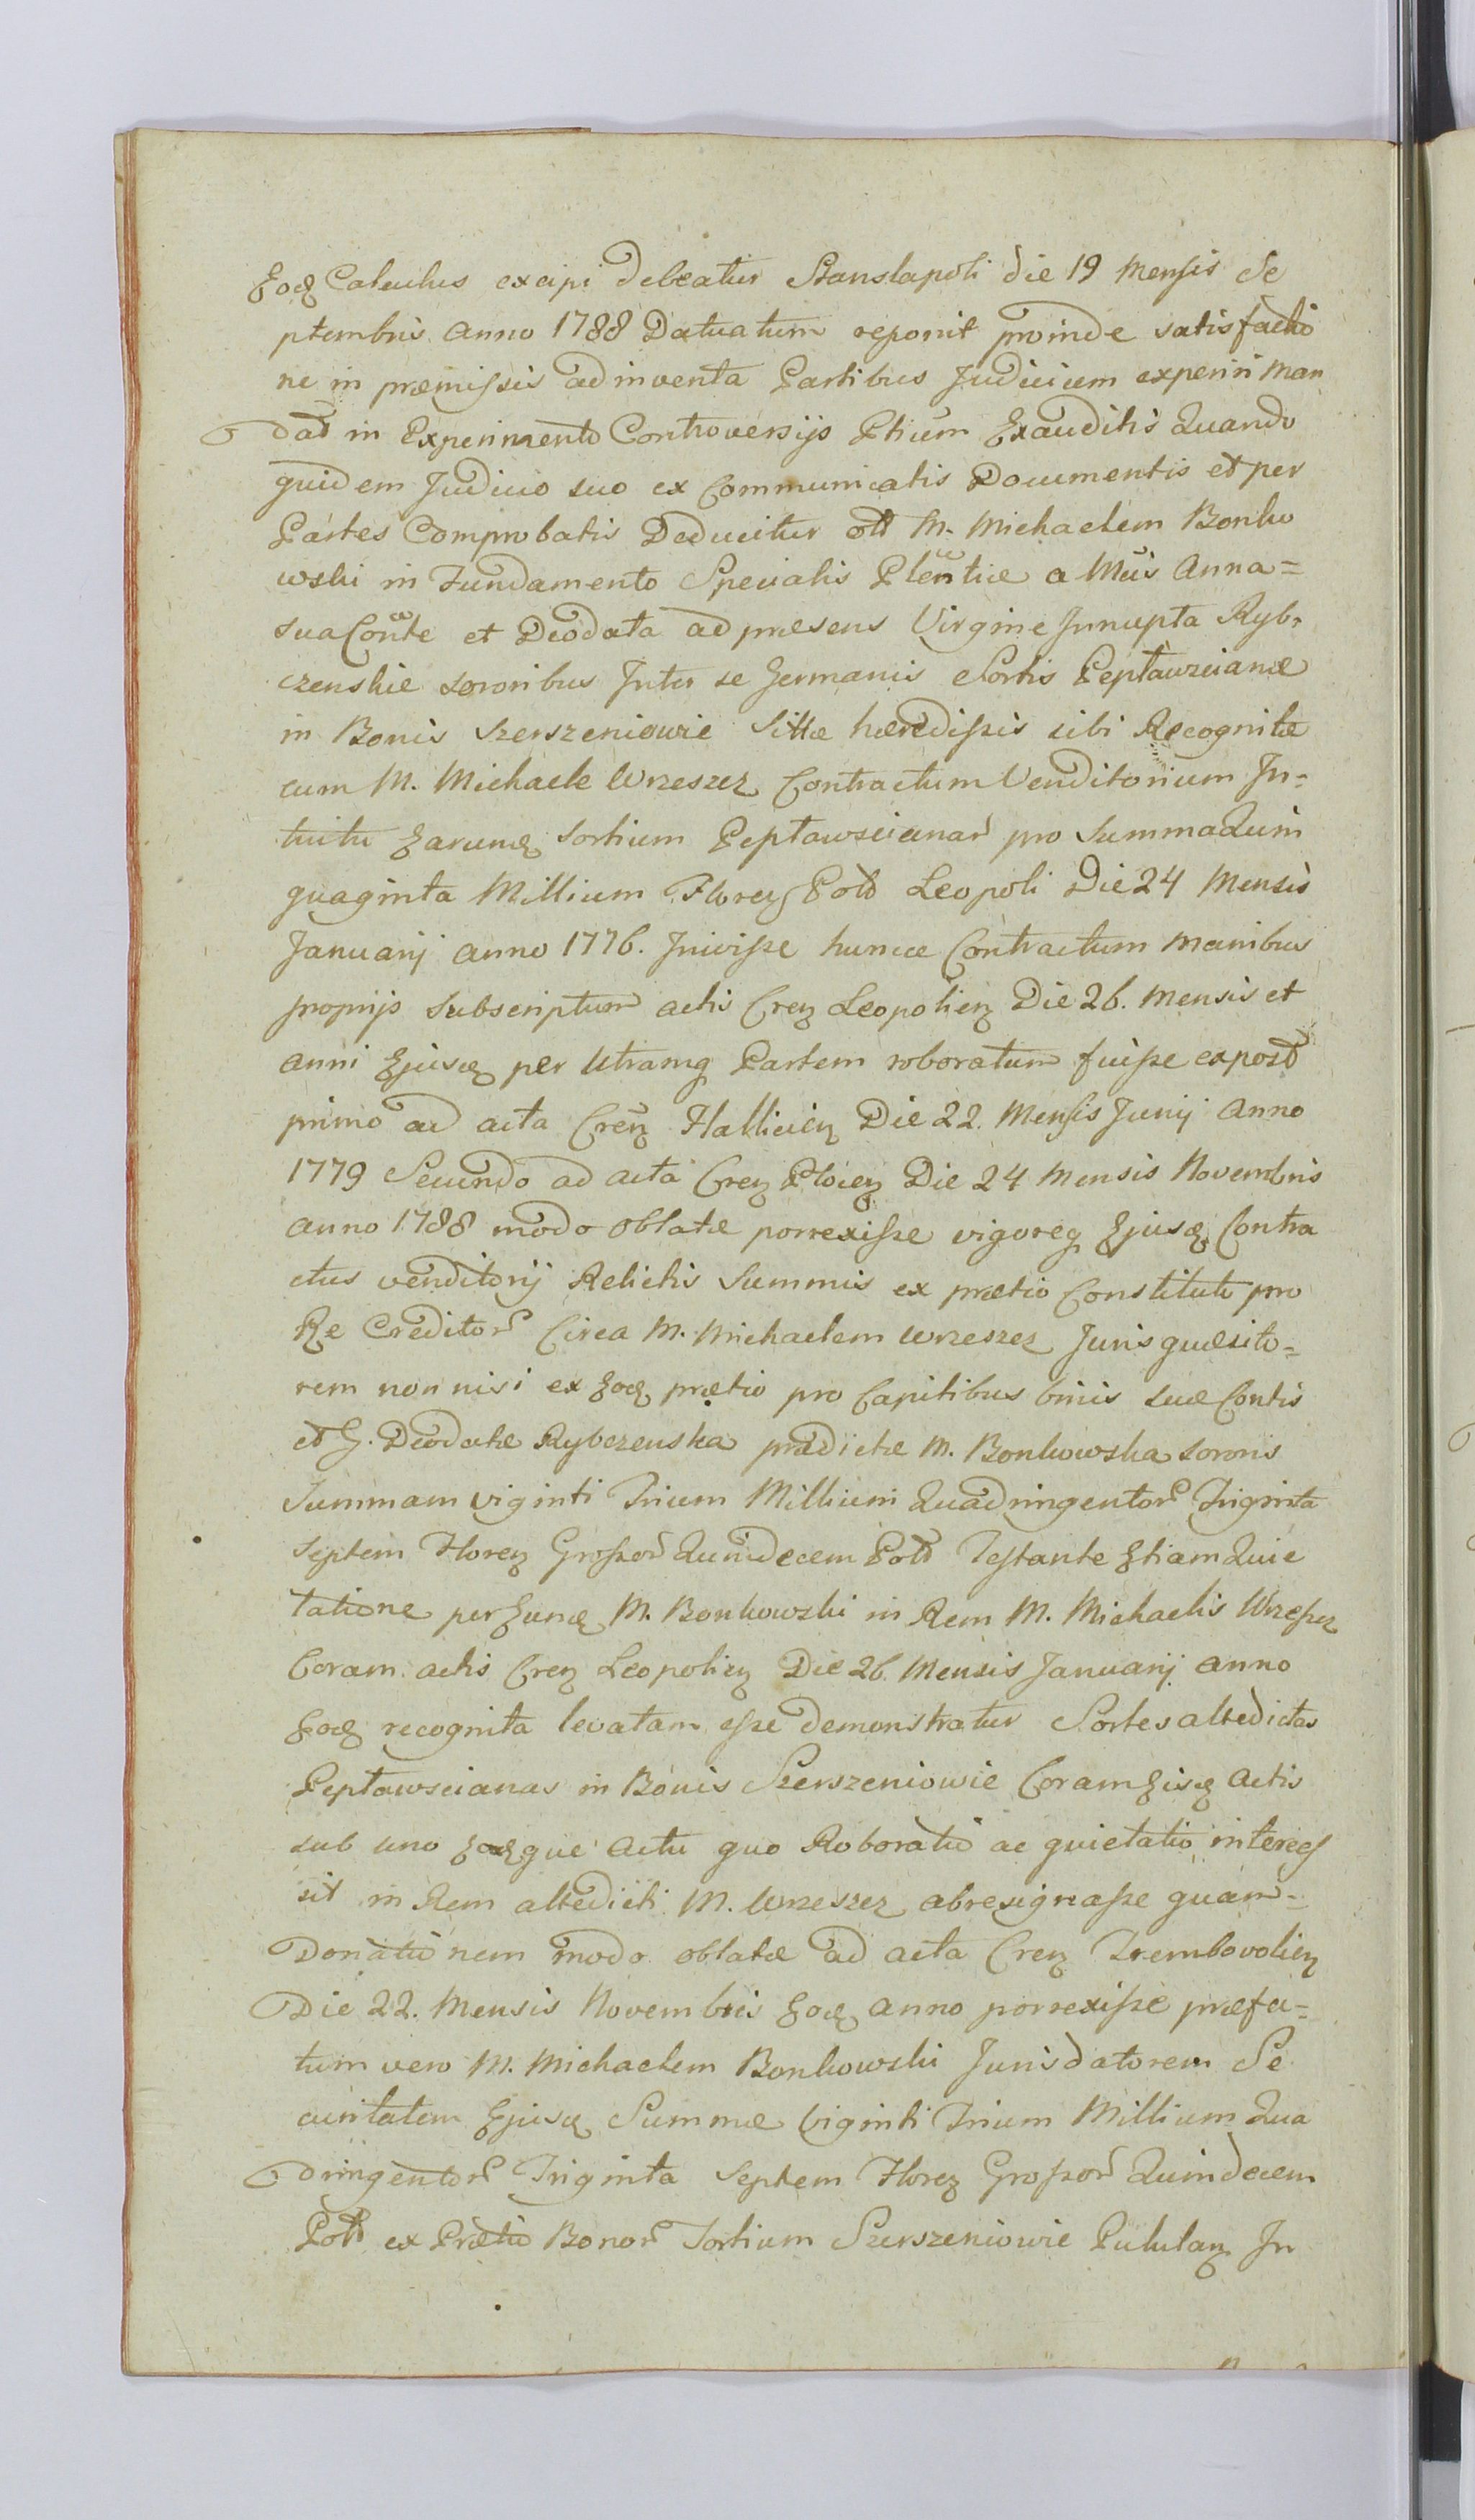 Eoq Calculus excipi debeatur Stanslapoli die 19 Mensis Se
ptembris Anno 1788 Datuatum reponit proinde satisfactio
ne in præmissis adinventa Partibus Judicium experiri Man
dat in Experimento Controversijs Ptium Exauditis Quando
quidem Judicio suo ex Communicatis Documentis et per
Partes Comprobatis Deducitur ott M. Michaelem Bonko
wski in Fundamento Specialis Plentiæ a Meis Anna=
sua Conte et Deodata ad præsens Virgine Innupta Ryb=
czenskie sororibus Inter se Germanis Sortis Peptawscianæ
in Bonis Szerszeniowie Sittæ hæredissis sibi Recognitæ
cum M. Michaele Wrzeszcz Contractum Venditorium In=
tuitu Earumq Sortium Peptawscianar pro Summa Quin
quaginta Millium Floreż Pold Leopoli Die 24 Mensis
Januarij Anno 1776. Inivisse huncce Contractum manibus
proprijs Subscriptum actis Creż Leopolież Die 26. Mensis et
anni Ejusq per Utramq Partem roboratum fuisse ex post
primo ad acta Creż Halliciez Die 22. Mensis Junij Anno
1779 Secundo ad acta Creż Ptbiez Die 24 Mensis Novembris
Anno 1788 modo oblatæ porrexisse vigoreq Ejusq Contra
ctus venditorij Relictis Summis ex prætio Constituto pro
Re Creditor Circa M. Michaelem Wrzeszcz Juris quæsito=
rem non nisi ex Eoq prætio pro Capitibus binis suæ Contis
et G. Deodatæ Rybczenska prædictæ M. Bonkowska sororis
Summam viginti Trium Millium Quadringentor Triginta
septem Florez Grossor Quindecem Pold Testante Etiam Quie
tatione per Eunq M. Bonkowski in Rem M. Michaelis Wrzeszcz
Coram actis Crez Leopoliez Die 26. Mensis Januarij Anno
Eoq recognita levatam esse demonstratur Sortes altedictas
Peptawscianas in Bonis Szerszeniowie Coram Eisq Actis
sub uno Eoqque Actu quo Roboratio ac quietatio interces
sit in Rem altedicti M. Wrzeszcz abresignasse quam=
Donationem modo oblatæ ad acta Crez Trembovoliez
Die 22. Mensis Novembris Eoq anno porrexisse præfa=
tum vero M. Michaelem Bonkowski Jurisdatorem Se
curitatem Ejusq Summæ Viginti Trium Millium Qua
dringentor Triginta Septem Florez Grossor Quindecem
Pold ex Prætio Bonor Sortium Szerszeniowie Pululaż In